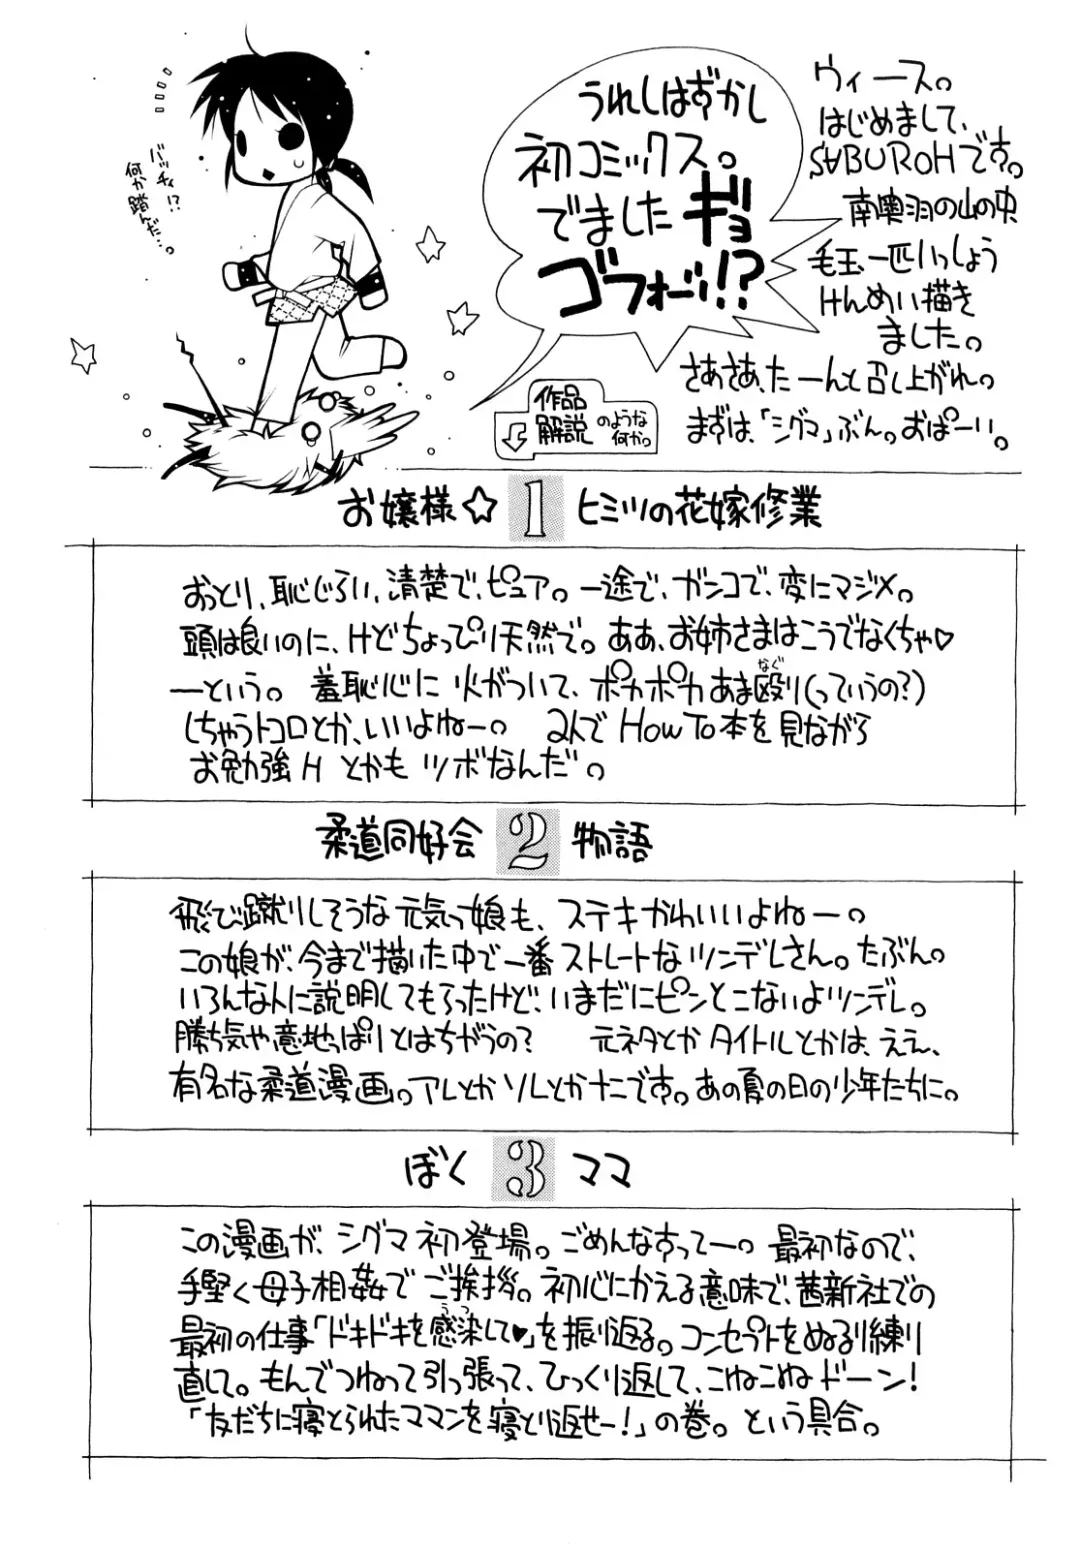 ウィース。
はじめまして、
SABUROHです。
南奥羽の山の中
毛玉一匹いっしょう
けんめい描き
ました。
さあさあ、たーんと召し上がれ。
まずは、「シグマ」ぶん。おぱーい。
うれしはずかし
初コミックス。
でました ギョ
ゴフォーッ!?
バッチィ!?
何か踏んだ…。
作品
解説
のような
何か。
お嬢様☆ 1 ヒミツの花嫁修業
おっとり、恥じらい、清楚で、ピュア。一途で、ガンコで、変にマジメ。
頭は良いのに、Hどちょっぴり天然で。ああ、お姉さまはこうでなくちゃ♡
ーという。 羞恥心に火がついて、ポカポカあま殴り(っていうの?)
なぐ
しちゃうトコロとか、いいよねー。 2人でHow To本を見ながら
お勉強H とかも ツボなんだ。
柔道同好会 2 物語
飛び蹴りしそうな元気っ娘も、ステキかわいいよねー。
この娘が、今まで描いた中で一番ストレートなツンデレさん。たぶん。
いろんな人に説明してもらったけど、いまだにピンとこないよツンデレ。
勝ち気や意地っぱりとはちがうの? 元ネタとかタイトルとかは、ええ、
有名な柔道漫画。アレとかソレとかナニです。あの夏の日の少年たちに。
ぼく 3 ママ
この漫画が、シグマ初登場。ごめんなすってー。 最初なので、
手堅く母子相姦でご挨拶。初心にかえる意味で、茜新社での
最初の仕事「ドキドキを感染して♥」を振り返る。コンセプトをぬるり練り
うつ
直して。もんでつねって引っ張って、ひっくり返して、こねこねドーン!
「友だちに寝とられたママンを寝とり返せー!」の巻。という具合。